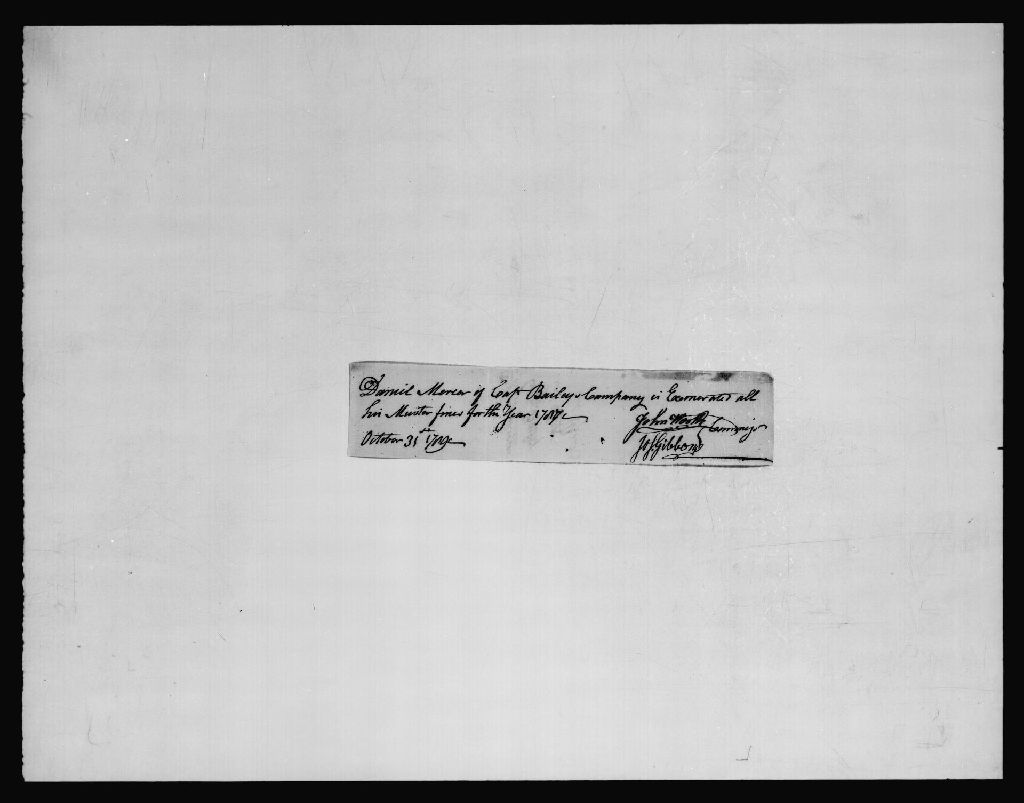 Daniel Mercer of Capt Baileys Company is Exonerated all
his Muster fines for the Year 1787
John Worth
October 31st 1789
Jos Gibbons